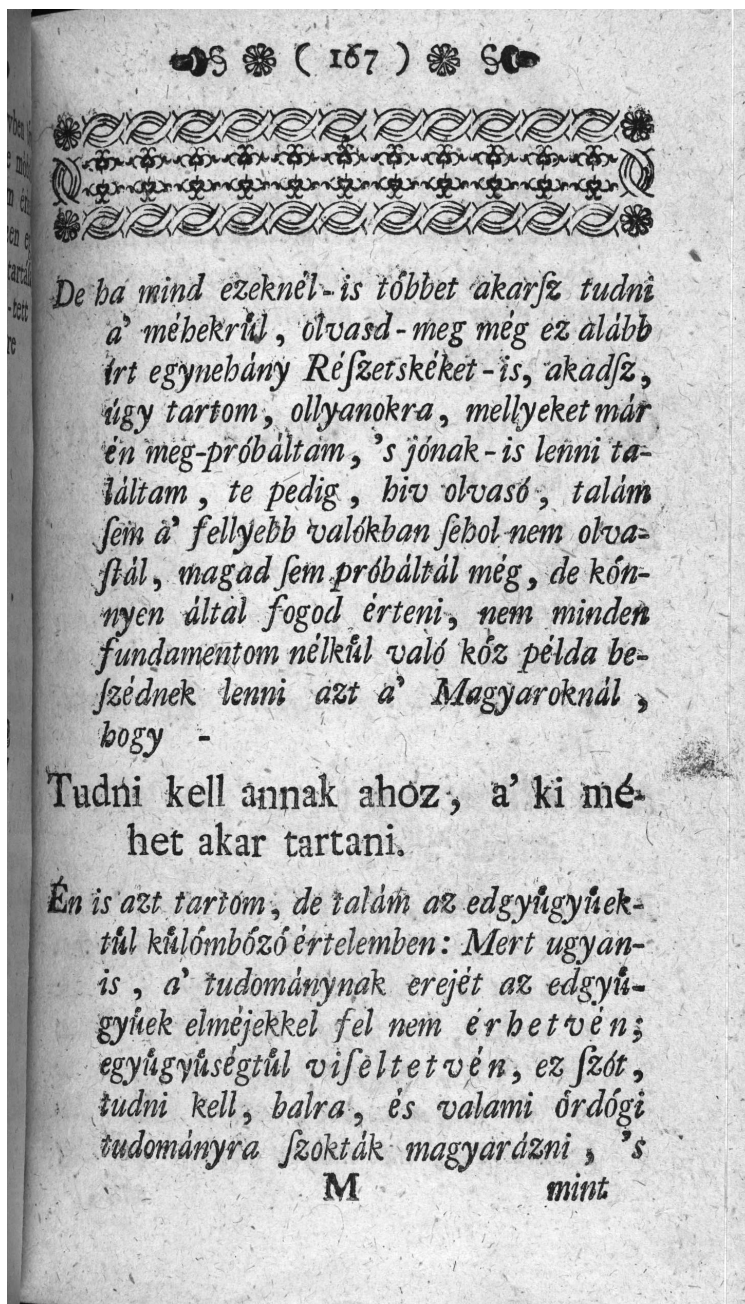 ( 167 )
De ha mind ezeknél-is tőbbet akarſz tudni
a' méhekrůl, olvasd-meg még ez alább
írt egynehány Réſzetskéket-is, akadſz,
úgy tartom, ollyanokra, mellyeket már
én meg-próbáltam, 's jónak-is lenni ta-
láltam, te pedig, hiv olvasó, talám
ſem a' fellyebb valókban ſehol nem olva-
ſtál, magad ſem próbáltál még, de kőn-
nyen által fogod érteni, nem minden
fundamentom nélkůl való kőz példa be-
ſzédnek lenni azt a' Magyaroknál,
hogy -
Tudni kell annak ahoz, a' ki mé-
het akar tartani.
Én is azt tartom, de talám az edgyůgyůek-
tůl kůlőmbőző értelemben: Mert ugyan-
is, a' tudománynak erejét az edgyů-
gyůek elméjekkel fel nem érhetvén;
egyůgyůségtůl viſeltetvén, ez ſzót,
tudni kell, balra, és valami őrdőgi
tudományra ſzokták magyarázni, 's
M mint